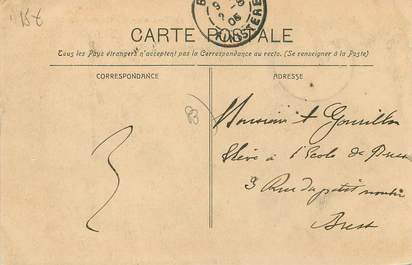 15€
9
05
FINISTERE
CARTE POSTALE
Tous les Pays étrangers n'acceptent pas la Correspondance au recto. (Se renseigner à la Poste)
CORRESPONDANCE
ADRESSE
83
3
Monsieur
Elève à l'Ecole de
3 Rue du petit moulin
Brest